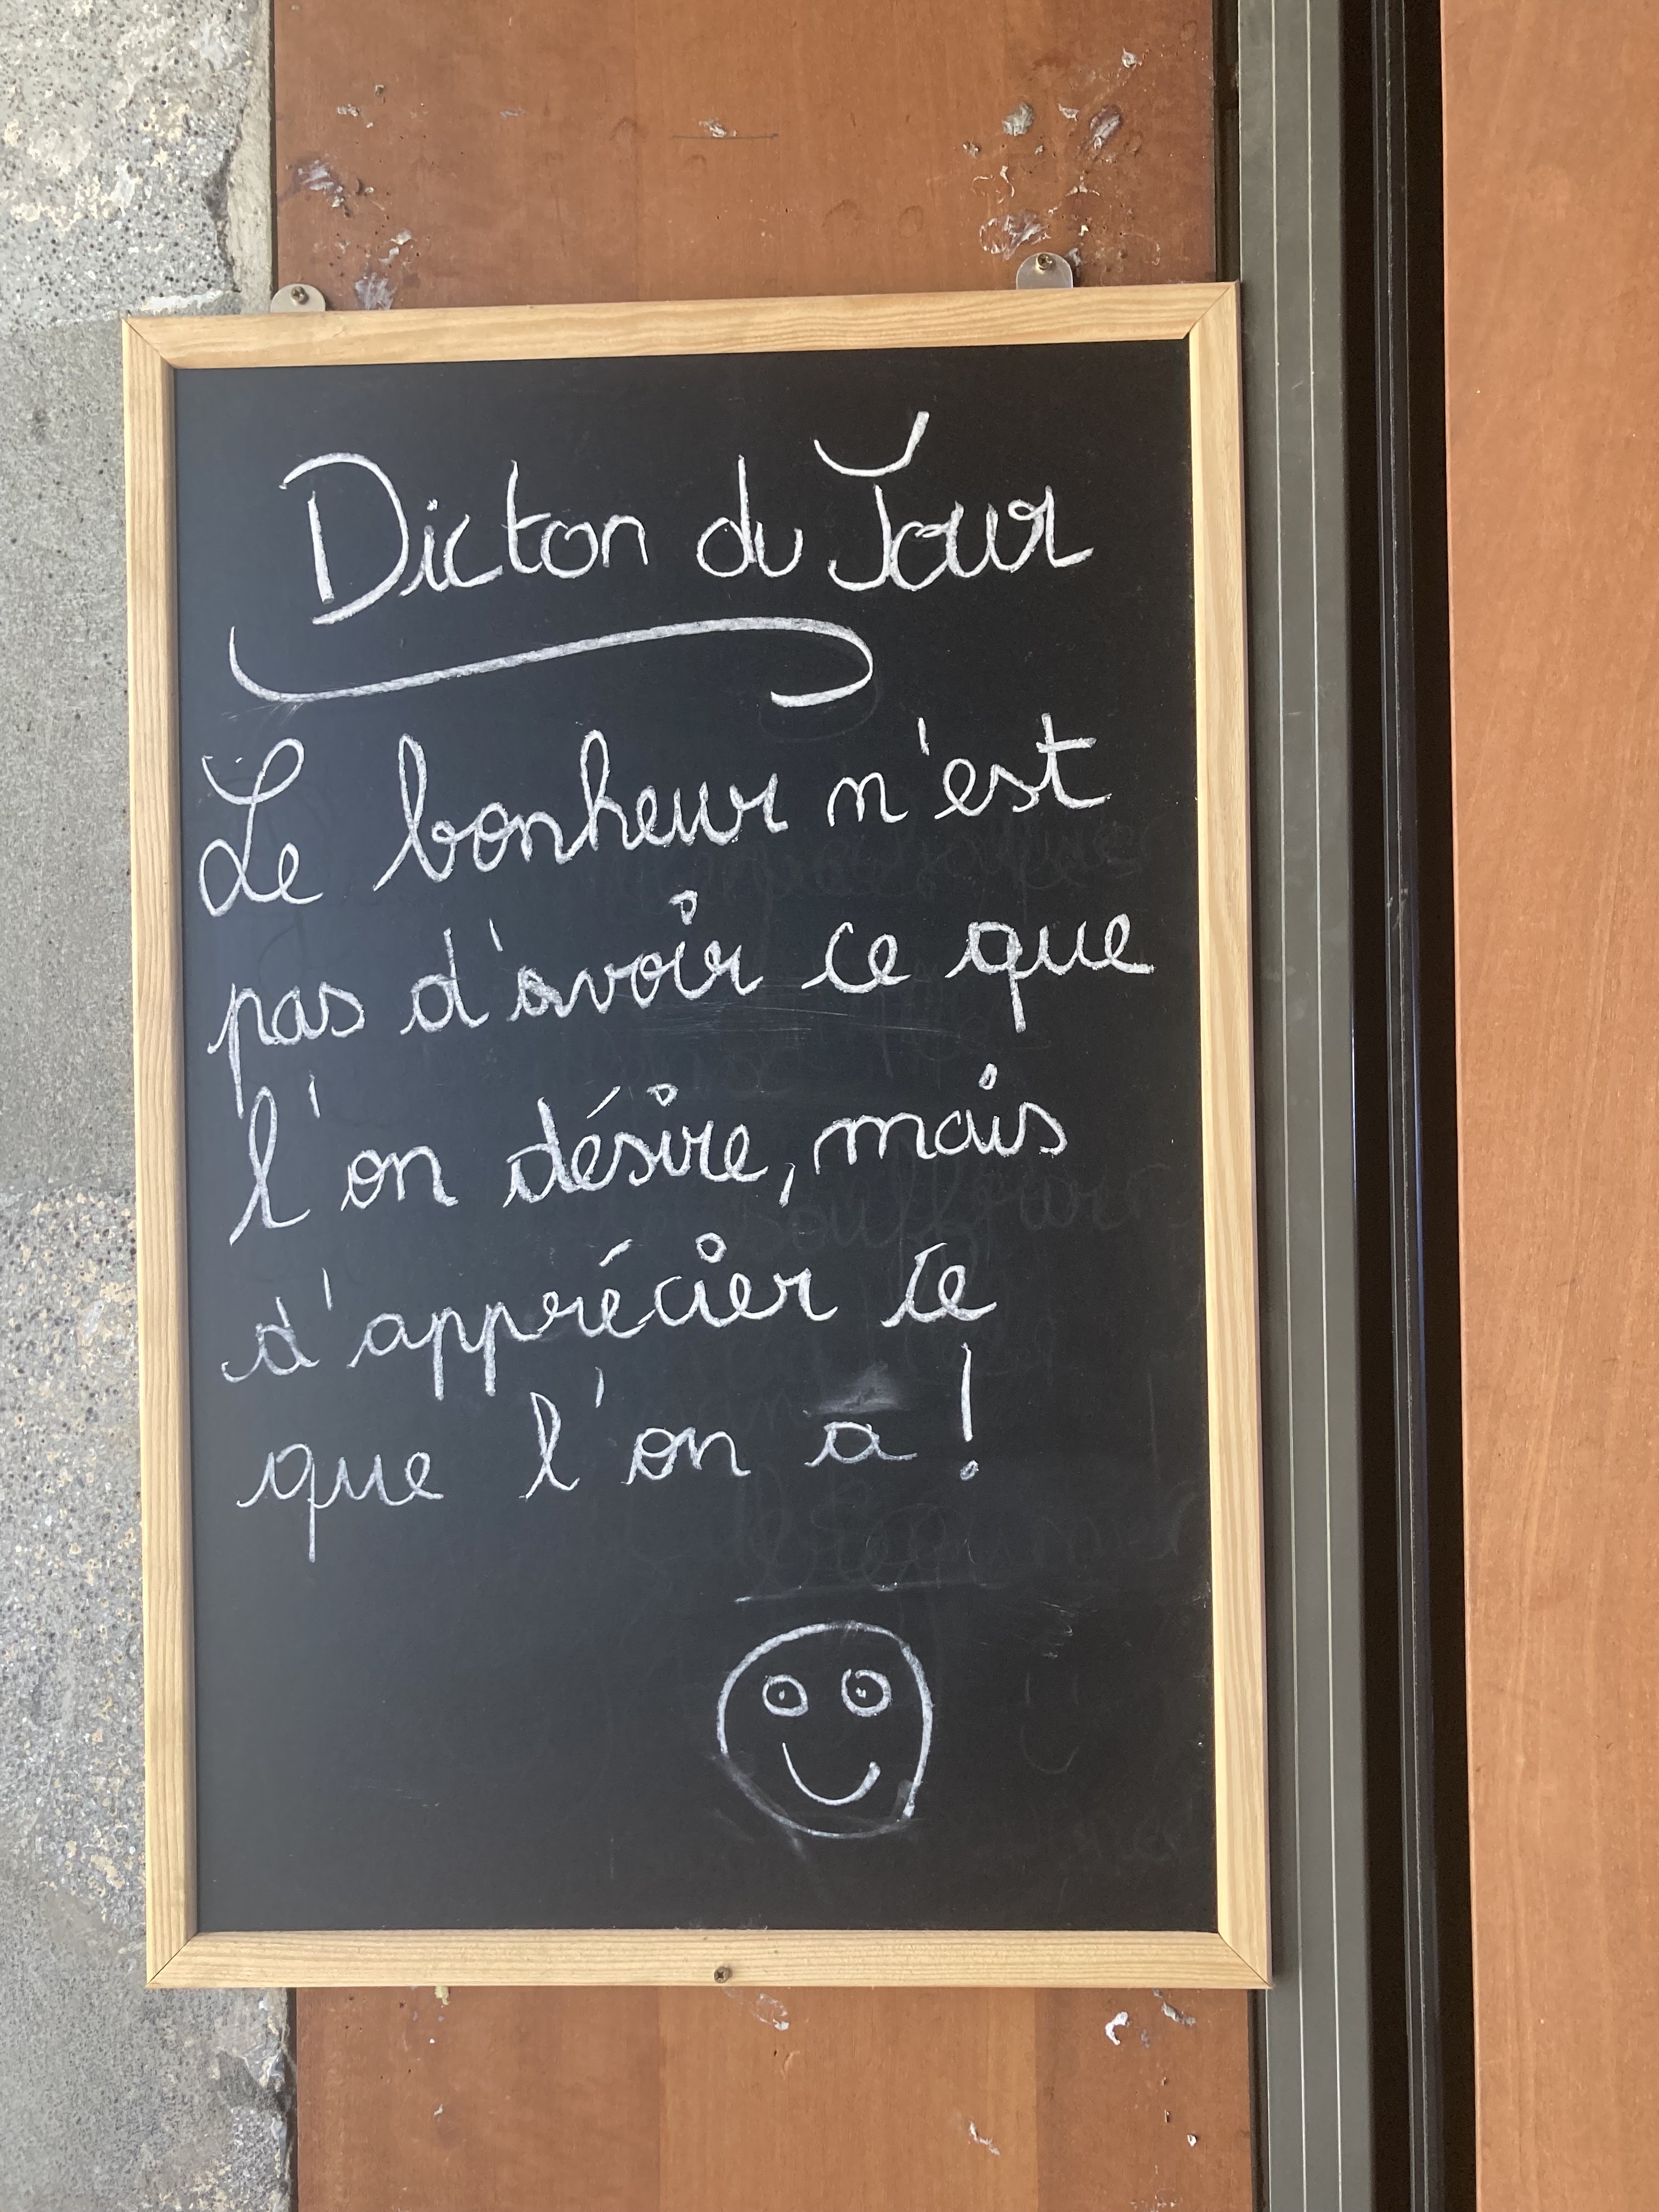 Dicton du Jour
Le bonheur n'est
pas d'avoir ce que
l'on désire, mais
d'apprécier ce
que l'on a !